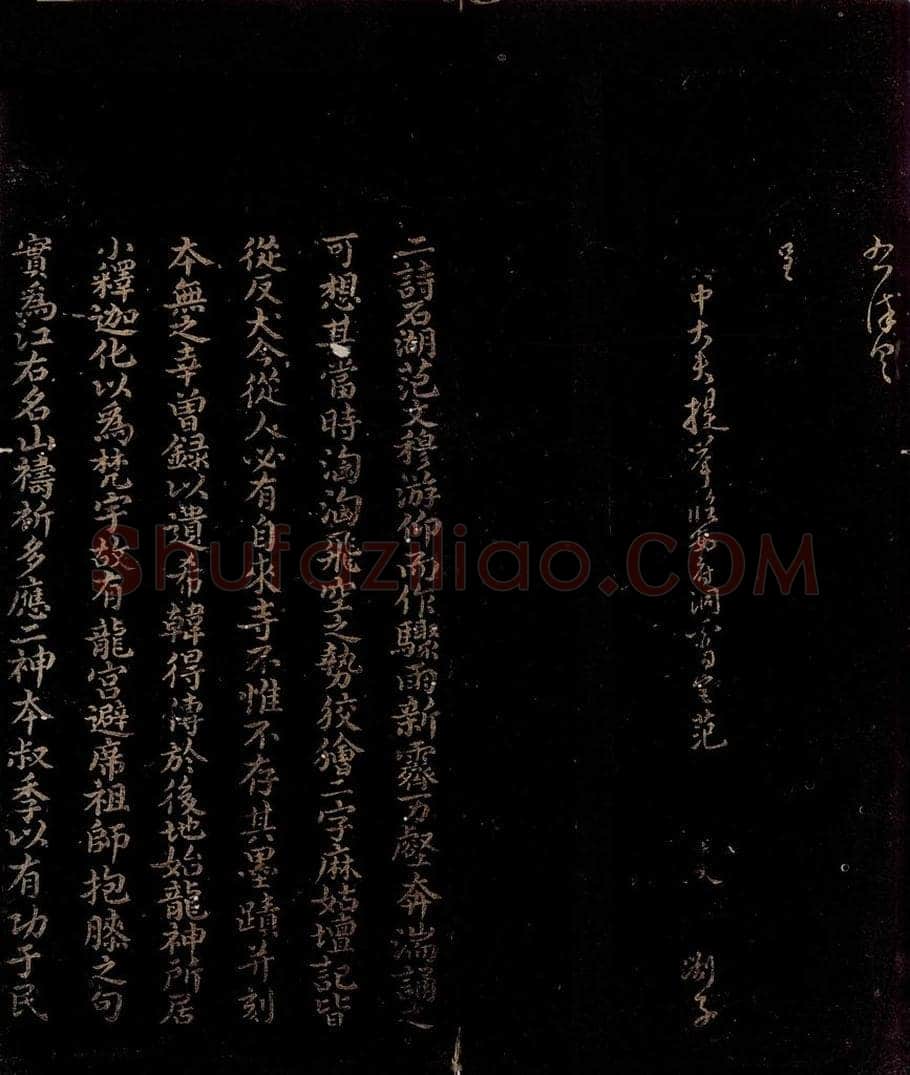 呈
中大夫提舉
范
劉子
二詩石湖范文穆游仰而作驟雨新霽万壑奔湍誦之
可想其當時洶洶飛空之勢狡獪二字麻姑壇記皆
從反犬今從人必有自來寺不惟不存其墨蹟并刻
本無之幸曽録以遺布韓得傳於後地始龍神所居
小釋迦化以為梵宇故有龍宫避席祖師抱膝之句
實為江右名山禱祈多應二神本叔季以有功于民
Shufaziliao.COM